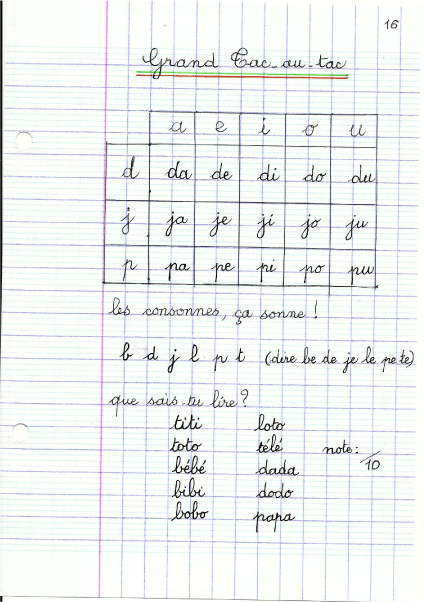 16
Grand Tac-au-tac
a e i o u
d da de di do du
j ja je ji jo ju
p pa pe pi po pu
les consonnes, ça sonne !
b d j l p t (dire be de je le pe te)
que sais-tu lire ?
titi loto
toto télé note : /10
bébé dada
bibi dodo
bobo papa